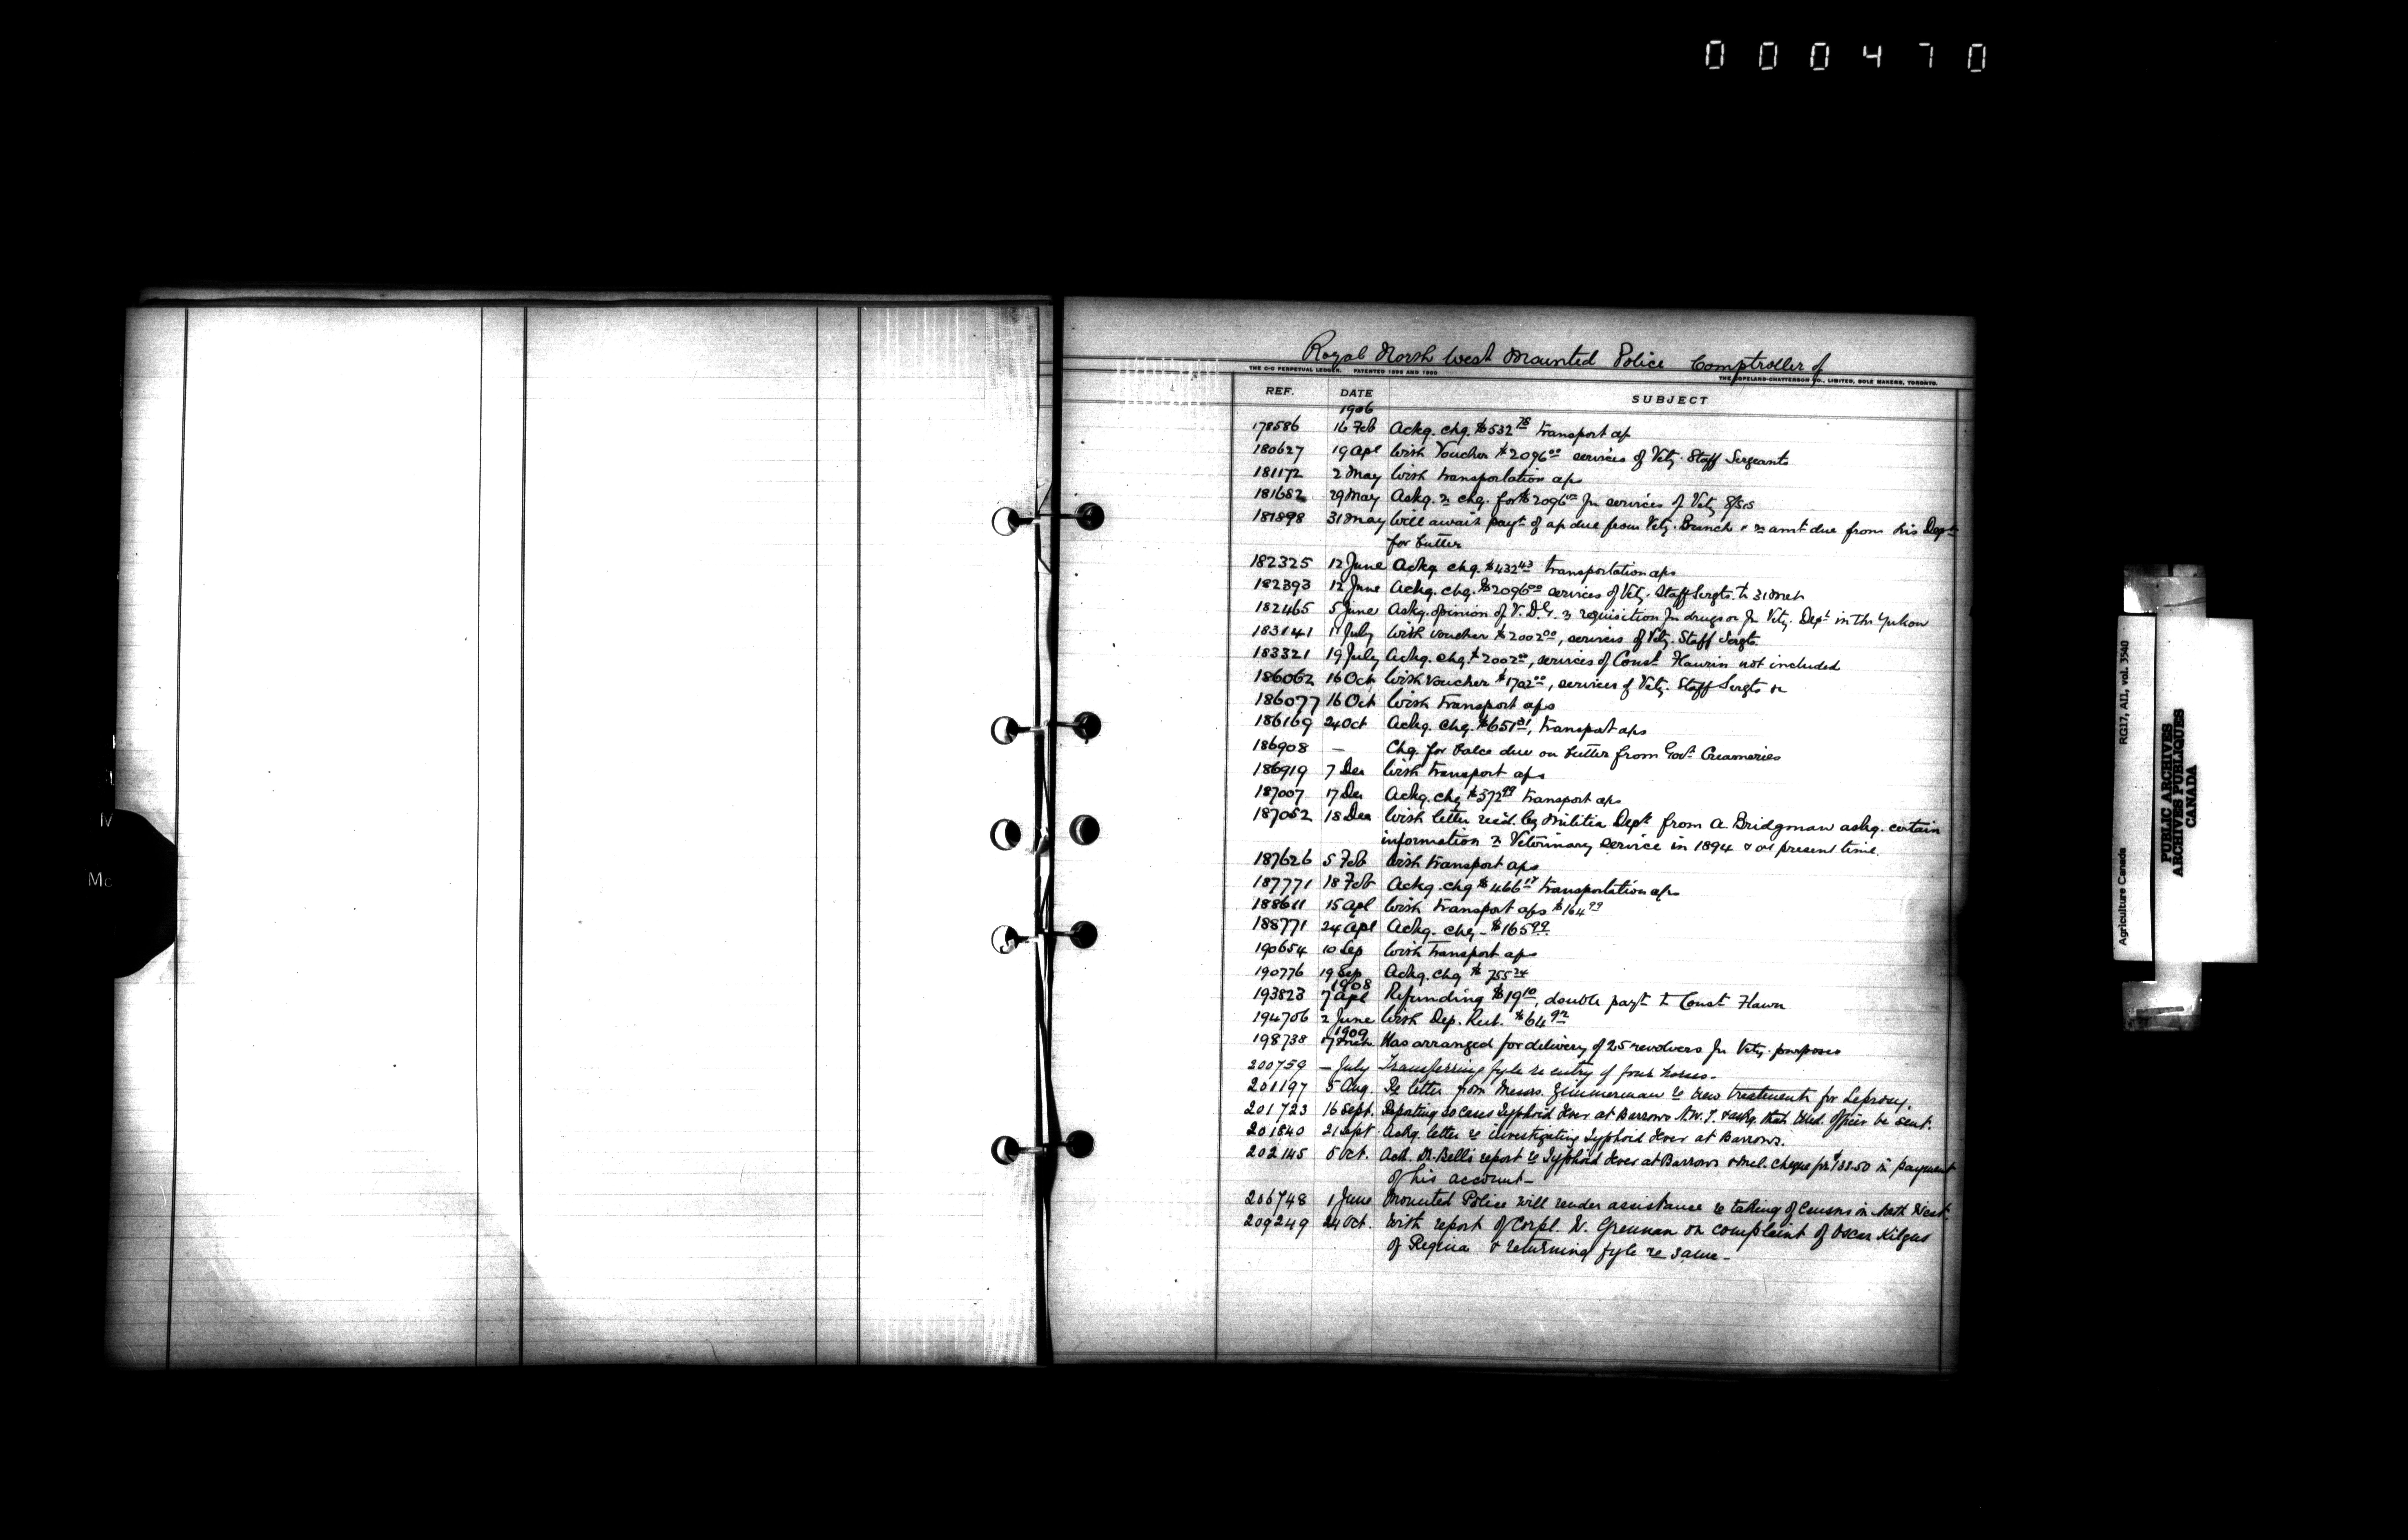 000470
Royal North West Mounted Police Comptroller of
THE C-C PERPETUAL LEDGER. PATENTED 1896 AND 1900
THE COPELAND-CHATTERSON CO., LIMITED, SOLE MAKERS, TORONTO.
REF. DATE SUBJECT
1906
178586 16 Feb Ackg. chq. $532 75 transport a/c
180627 19 Apl With Voucher $2096 00 services of Vety. Staff Sergeants
181172 2 May With transportation a/cs
181682 29 May Askg. re chq. for $2096 00 for services of Vety
181898 31 May Will await payt of a/c due from Vety. Branch & re amt due from his Dept
for butter
182325 12 June Ackg chq. $432 43 transportation a/cs
182393 12 June Ackg. chq. $2096 00 services of Vety. Staff Sergts. to 31 Mch
182465 5 June Askg. opinion of V.D.G. re requisition for drugs for Vety. Dept in the Yukon
183141 11 July With voucher $2002 00, services of Vety. Staff Sergts.
183321 19 July Ackg. chq. $2002 00, services of Const Hawin not included
186062 16 Oct With Voucher $1702 00, services of Vety. Staff Sergts
186077 16 Oct With transport a/cs
186169 24 Oct Ackg. chq. $651 21, transport a/cs
186908 — Chq. for balce due on butter from Govt. Creameries
186919 7 Dec With transport a/cs
187007 17 Dec Ackg. chq $372 99 transport a/cs
187052 18 Dec With letter recd. by Militia Dept from A. Bridgman askg. certain
information re Veterinary service in 1894 & at present time.
187626 5 Feb With transport a/cs
187771 18 Feb Ackg. chq $466 17 transportation a/cs
188611 15 Apl With transport a/cs $164 99
188771 24 Apl Ackg. chq - $165 99
190654 10 Sep With transport a/cs
190776 19 Sep Ackg. chq $755 24
1908
193823 7 Apl Refunding $19 10, double payt to Const Hawn
194706 2 June With Dep. Rect. $64 92
1909
198738 17 Mch. Has arranged for delivery of 25 revolvers for Vety. purposes
200759 — July Transferring fyle re entry of four horses.
201197 5 Aug. Re letter from Messrs. Zimmerman re new treatments for Leprosy.
201723 16 Sept. Reporting 20 cases Typhoid fever at Barrows N.W.T. & askg. that Med. Officer be sent.
201840 21 Sept Ackg. letter re investigating Typhoid fever at Barrows.
202145 5 Oct. Ack. Dr. Bell's report re Typhoid fever at Barrows & incl. cheque for $132.50 in payment
of his account—
206748 1 June Mounted Police will render assistance re taking of Census in North West.
209249 24 Oct. With report of Corpl. W. Grennan on complaint of Oscar Kilgus
of Regina & returning fyle re same—
Agriculture Canada RG17, AII, vol. 3540
PUBLIC ARCHIVES
ARCHIVES PUBLIQUES
CANADA